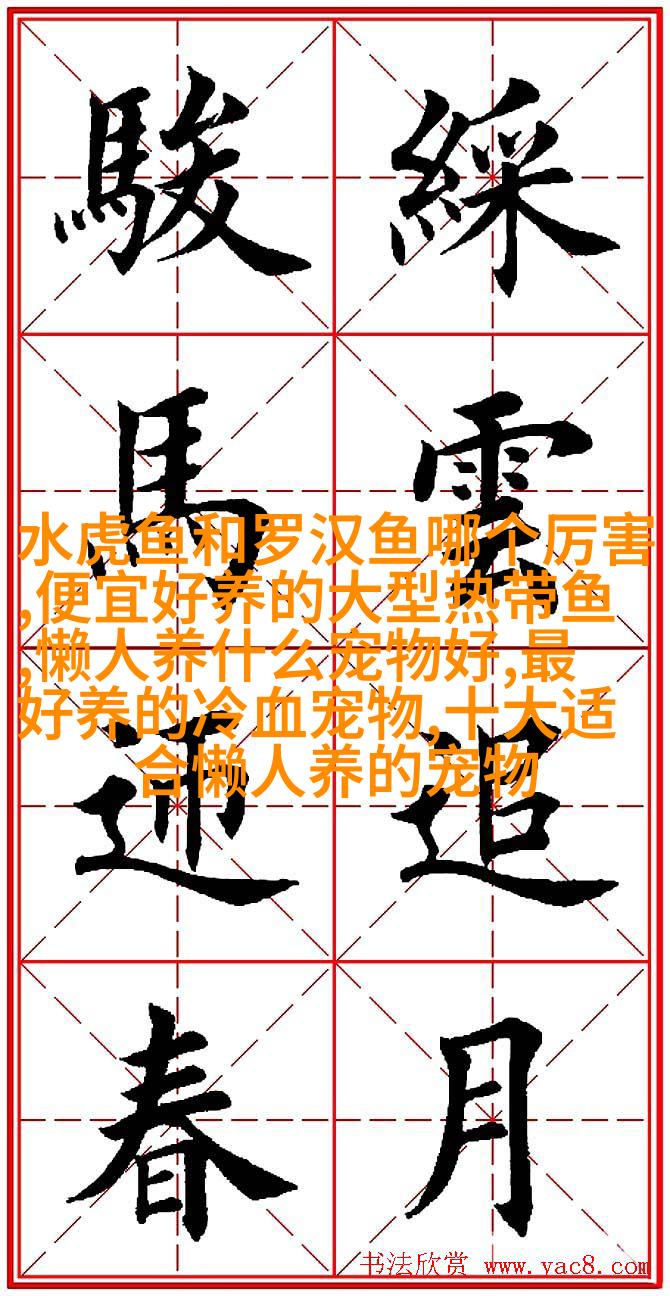 綵雲追月
駿馬迎春
水虎鱼和罗汉鱼哪个厉害
,便宜好养的大型热带鱼
,懒人养什么宠物好,最
好养的冷血宠物,十大适
合懒人养的宠物
书法欣赏 www.yac8.com